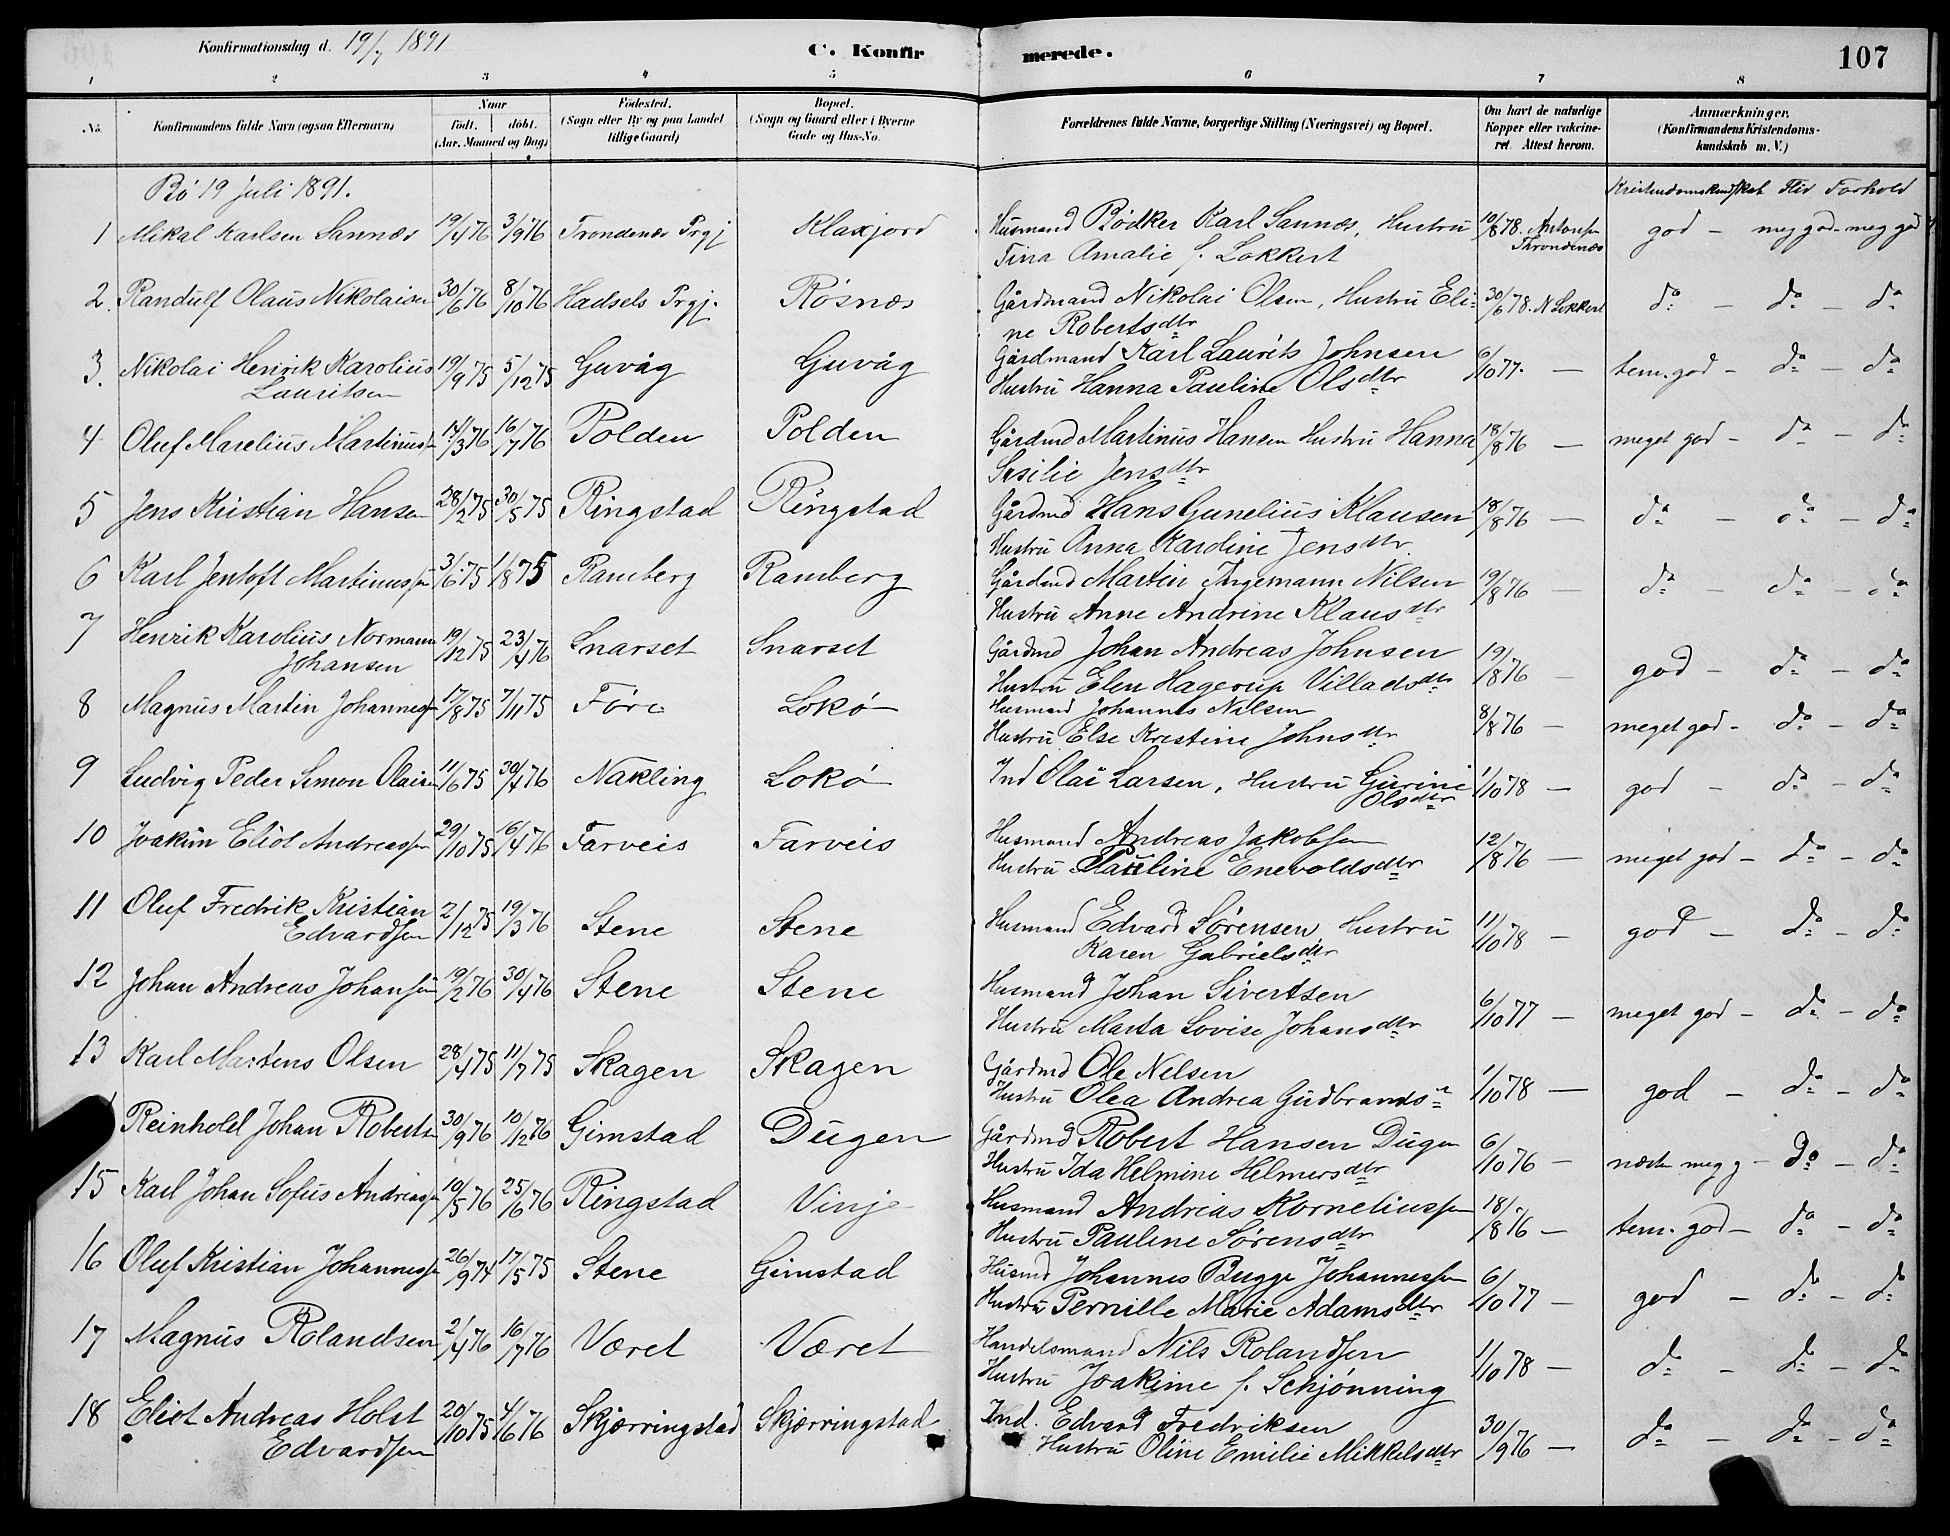 Konfirmationsdag d. 19/7 1891
C. Konfirmerede.
107
1 2 3 4 5 6 7 8
No. Konfirmandens fulde Navn (ogsaa Efternavn) Naar Født. døbt. (Aar, Maaned og Dag) Fødested. (Sogn eller By og paa Landet tillige Gaard) Bopæl. (Sogn og Gaard eller i Byerne Gade og Hus-No. Forældrenes fulde Navne, borgerlige Stilling (Næringsvei) og Bopæl. Om havt de naturlige Kopper eller vakcineret. Attest herom. Anmærkninger. (Konfirmandens Kristendomskundskab m. V.)
Bö 19 Juli 1891. Kristendomskundskab Flid Forhold
1 Mikal Karlsen Sannæs 19/4 76 3/9 76 Trondenæs Prgj Klakjord Husmand Bødker Karl Sannæs, Hustru 10/8 78. Antonsen god - meg god - meg god
Tina Amalie f. Lokkert Throndenæs
2. Randulf Olaus Nikolaisen 30/6 76 8/10 76 Hadsels Prgj. Røsnæs Gårdmand Nikolai Olsen, Hustru Eli- 30/6 78. N Lokkert do - do - do
ne Robertsdtr
3. Nikolai Henrik Karolius 19/9 75 5/12 75 Guvåg Guvåg Gårdmand Karl Laurits Johnsen 6/10 77. - tem. god - do - do
Lauritsen Hustru Hanna Pauline Olsdtr
4 Oluf Marelius Martinussen 14/3 76 16/7 76 Polden Polden Gårdmd Martinus Hansen Hustru Hanna 18/8 76 - meget god - do - do
Sesilie Jensdtr
5 Jens Kristian Hansen 28/2 75 30/5 75 Ringstad Ringstad Gårdmd Hans Gunelius Klausen 18/8 76 - do - do - do
Hustru Anna Karoline Jensdtr.
6 Karl Jentoft Martinussen 3/6 75 1/8 75 Ramberg Ramberg Gårdmd Martin Ingemann Nilsen 19/8 76 - do - do - do
Hustru Anne Andrine Klausdtr
7 Henrik Karolius Normann 19/12 75 23/4 76 Snarset Snarset Gårdmd Johan Andreas Johnsen 19/8 76 - god - do - do
Johansen Hustru Elen Hagerup Villadsdtr
8 Magnus Martin Johannessen 17/8 75 7/11 75 Føre Lokø Husmand Johannes Nilsen 8/8 76 - meget god - do - do
Hustru Else Kristine Johnsdtr
9 Ludvig Peder Simon Olaisen 11/6 75 30/4 76 Nakling Lokø Ind Olai Larsen, Hustru Gurine 1/10 78 - god - do - do
Olsdtr
10 Joakim Eliot Andreassen 29/10 75 16/4 76 Farveis Farveis Husmand Andreas Jakobsen 12/8 76 - meget god - do - do
Hustru Pauline Enevoldsdtr
11 Oluf Fredrik Kristian 2/12 75 19/3 76 Stene Stene Husmand Edvard Sørensen Hustru 11/10 78 - god - do - do
Edvardsen Karen Gabrielsdtr
12 Johan Andreas Johansen 19/2 76 30/4 76 Stene Stene Husmand Johan Sivertsen 6/10 77 - meget god - do - do
Hustru Marta Lovise Johansdtr
13 Karl Martens Olsen 28/4 75 11/7 75 Skagen Skagen Gårdmd Ole Nelsen 1/10 78 - god - do - do
Hustru Olea Andrea Gudbrands
Reinhold Johan Robertsen 30/9 76 10/12 76 Gimstad Dugen Gårdmd Robert Hansen Dugen 6/10 76 - næsten meg g - do - do
Hustru Ida Helmine Helmersdtr
15 Karl Johan Sofus Andreassen 10/5 76 25/6 76 Ringstad Vinje Husmand Andreas Korneliussen 18/8 76 - tem. god - do - do
Hustru Pauline Sørensdtr
16 Oluf Kristian Johannessen 26/9 74 17/5 75 Stene Gimstad Husmd Johannes Bugge Johannessen 6/10 77 - god - do - do
Hustru Pernille Marie Adamsdtr
17 Magnus Rolandsen 2/4 76 16/7 76 Været Været Handelsmand Nils Rolandsen 1/10 78 - do - do - do
Hustru Joakime f. Schjønning
18 Eliot Andreas Holst 20/10 75 4/6 76 Skjærringstad Skjærringstad Ind. Edvard Fredriksen 30/9 76 - do - do - do
Edvardsen Hustru Oline Emilie Mikkelsdtr